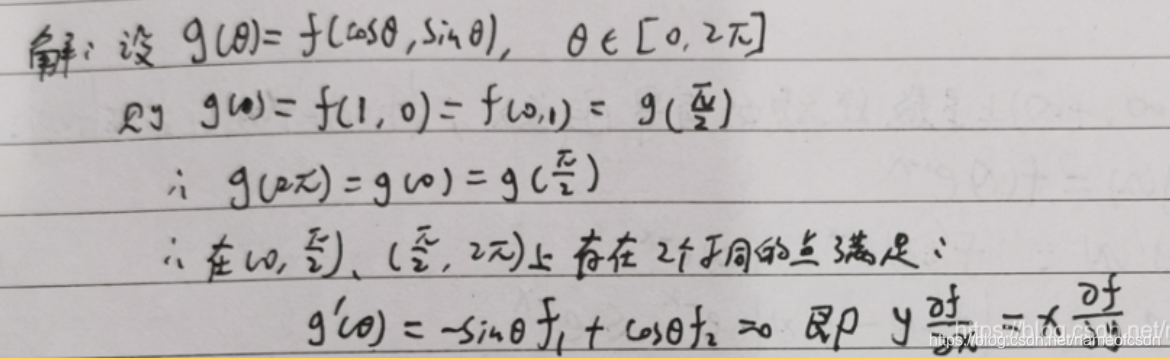 解：设 g(θ)= f(cosθ, sinθ), θ∈[0, 2π]
则 g(0) = f(1, 0) = f(0,1) = g(π/2)
∴ g(2π) = g(0) = g(π/2)
∴ 在(0, π/2)、(π/2, 2π)上 存在2个不同的点满足：
g'(θ) = -sinθ f₁ + cosθ f₂ =0 即 y ∂f/∂x = x ∂f/
https://blog.csdn.net/nameofcsdn